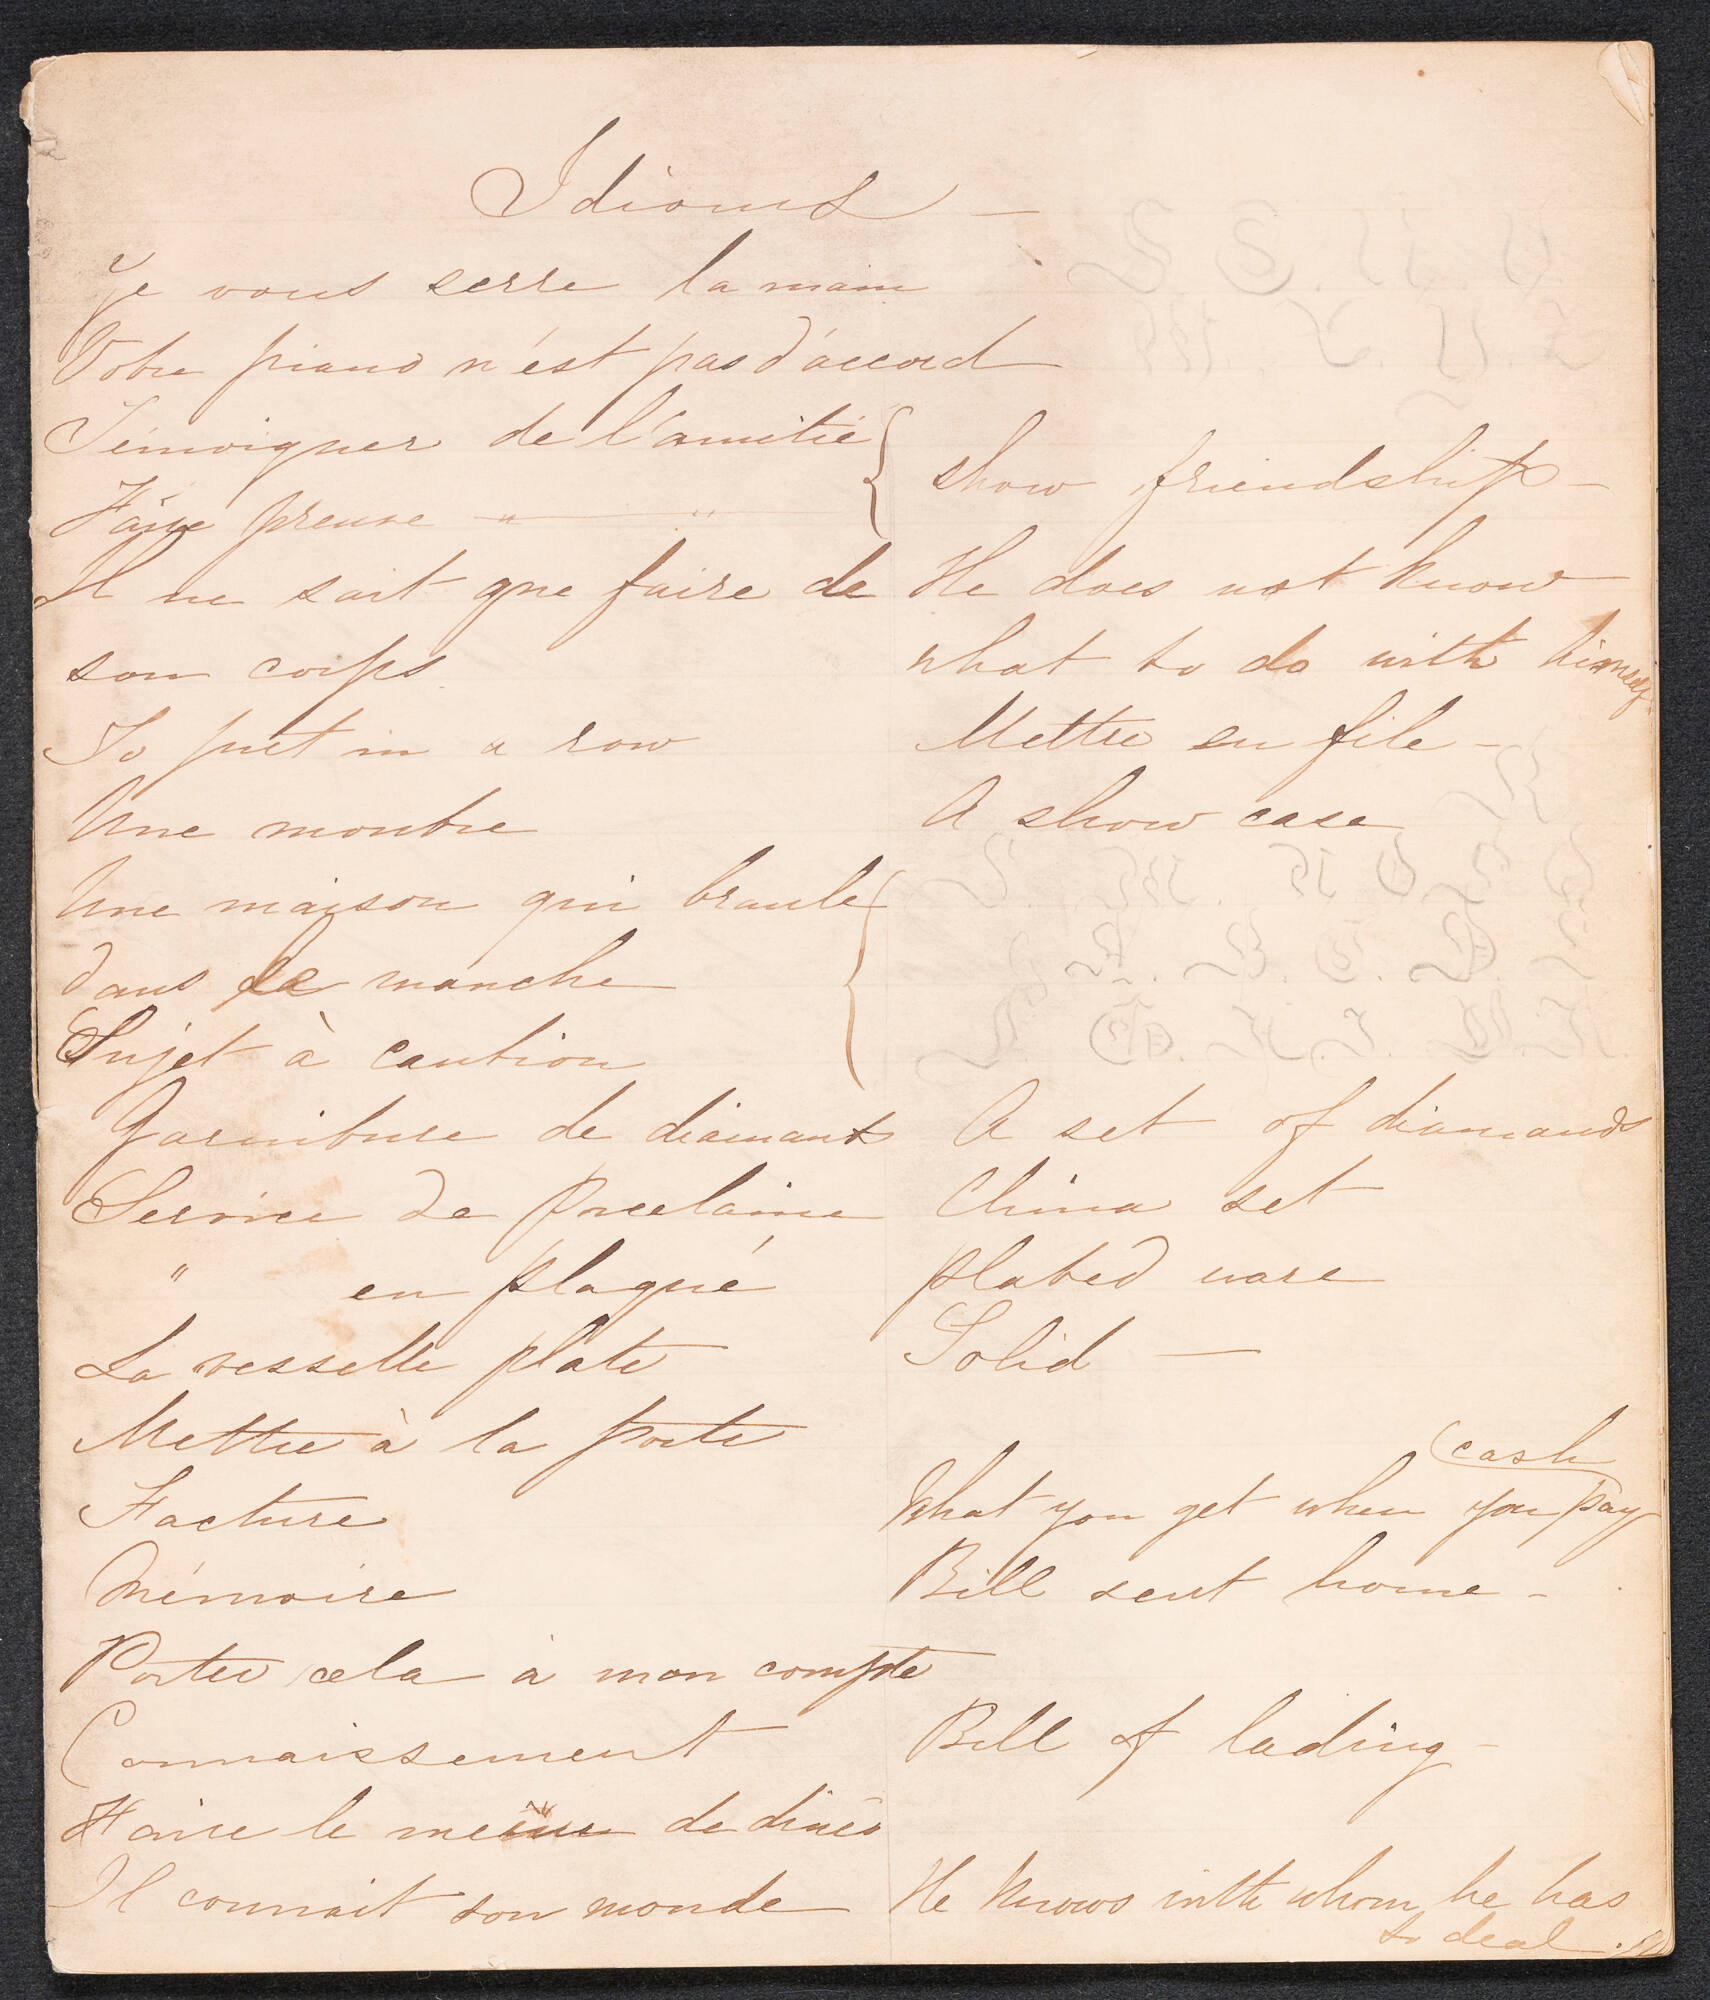 Idioms —
Je vous serre la main
Votre piano n'est pas d'accord
Témoigner de l'amitié
Faire preuve " — "
show friendship —
Il ne sait que faire de
He does not know
son corps
what to do with himself.
To put in a row
Mettre en file —
Une montre
A show case
Une maison qui branle
dans le manche
Sujet à caution
Garniture de diamants
A set of diamonds
Service de porcelaine
China set
" en plaqué
plated ware
La vesselle plate
Solid —
Mettre à la porte
cash
Facture
What you get when you pay
Mémoire
Bill sent home —
Porter cela à mon compte
Connaissement
Bill of lading —
Faire le menu de diner
Il connait son monde
He knows with whom he has
to deal.